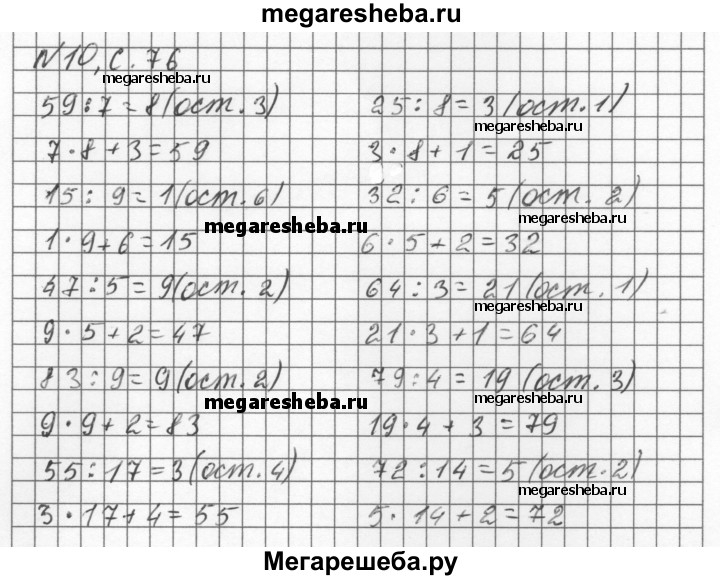 megaresheba.ru
N10, с. 76
megaresheba.ru
59:7=8(ост. 3)
25:8=3(ост. 1)
megaresheba.ru
7·8+3=59
3·8+1=25
15:9=1(ост. 6)
32:6=5(ост. 2)
megaresheba.ru
megaresheba.ru
1·9+6=15
6·5+2=32
47:5=9(ост. 2)
64:3=21(ост. 1)
megaresheba.ru
9·5+2=47
21·3+1=64
83:9=9(ост. 2)
79:4=19(ост. 3)
megaresheba.ru
megaresheba.ru
9·9+2=83
19·4+3=79
55:17=3(ост. 4)
72:14=5(ост. 2)
megaresheba.ru
3·17+4=55
5·14+2=72
Мегарешеба.ру